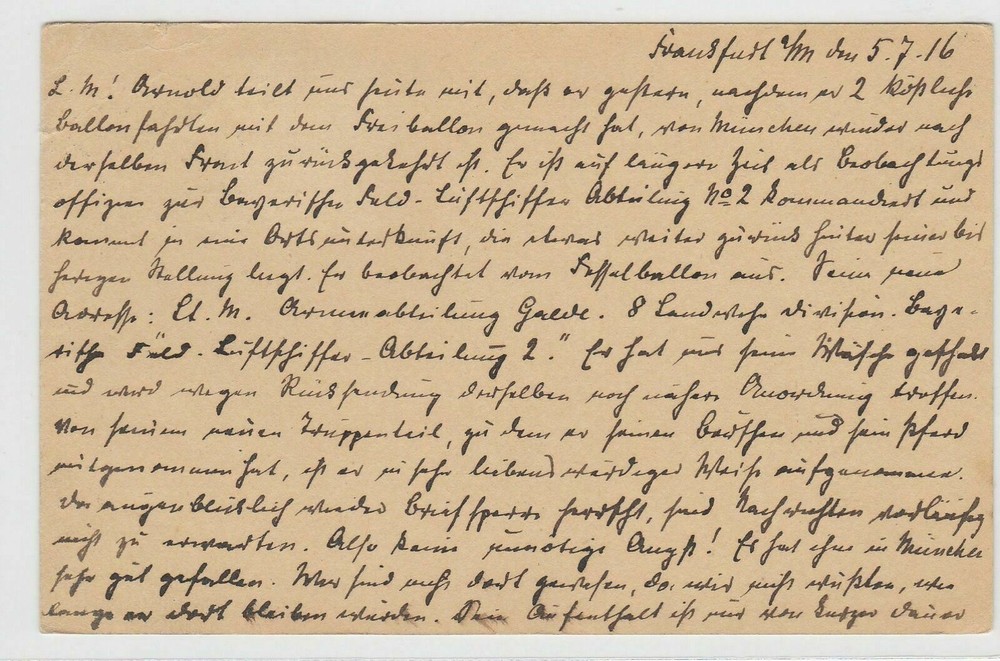 Frankfurt a/M den 5.7.16
L. M! Arnold teilt uns heute mit, daß er gestern, nachdem er 2 köstliche
Ballonfahrten mit dem Freiballon gemacht hat, von München wieder nach
derselben Front zurückgekehrt ist. Er ist auf längere Zeit als Beobachtungs
offizier zur Bayerischen Feld-Luftschiffer Abteilung No 2 kommandiert und
kommt in eine Ortsunterkunft, die etwas weiter zurück hinter seiner bis
herigen Stellung liegt. Er beobachtet vom Fesselballon aus. Seine neue
Adresse: Lt. M. Armeeabteilung Gaede. 8 Landwehr Division. Baye-
rische Feld-Luftschiffer-Abteilung 2." Er hat uns seine Wäsche geschickt
und wird wegen Rücksendung derselben noch nähere Anordnung treffen.
Von seinem neuen Truppenteil, zu dem er seinen Burschen und sein Pferd
mitgenommen hat, ist er in sehr liebenswürdiger Weise aufgenommen.
Da augenblicklich wieder Briefsperre herrscht, sind Nachrichten vorläufig
nicht zu erwarten. Also keine unnötige Angst! Es hat ihm in München
sehr gut gefallen. Wir sind nicht dort gewesen, da wir nicht wußten, wie
lange er dort bleiben würde. Sein Aufenthalt ist nur von kurzer Dauer